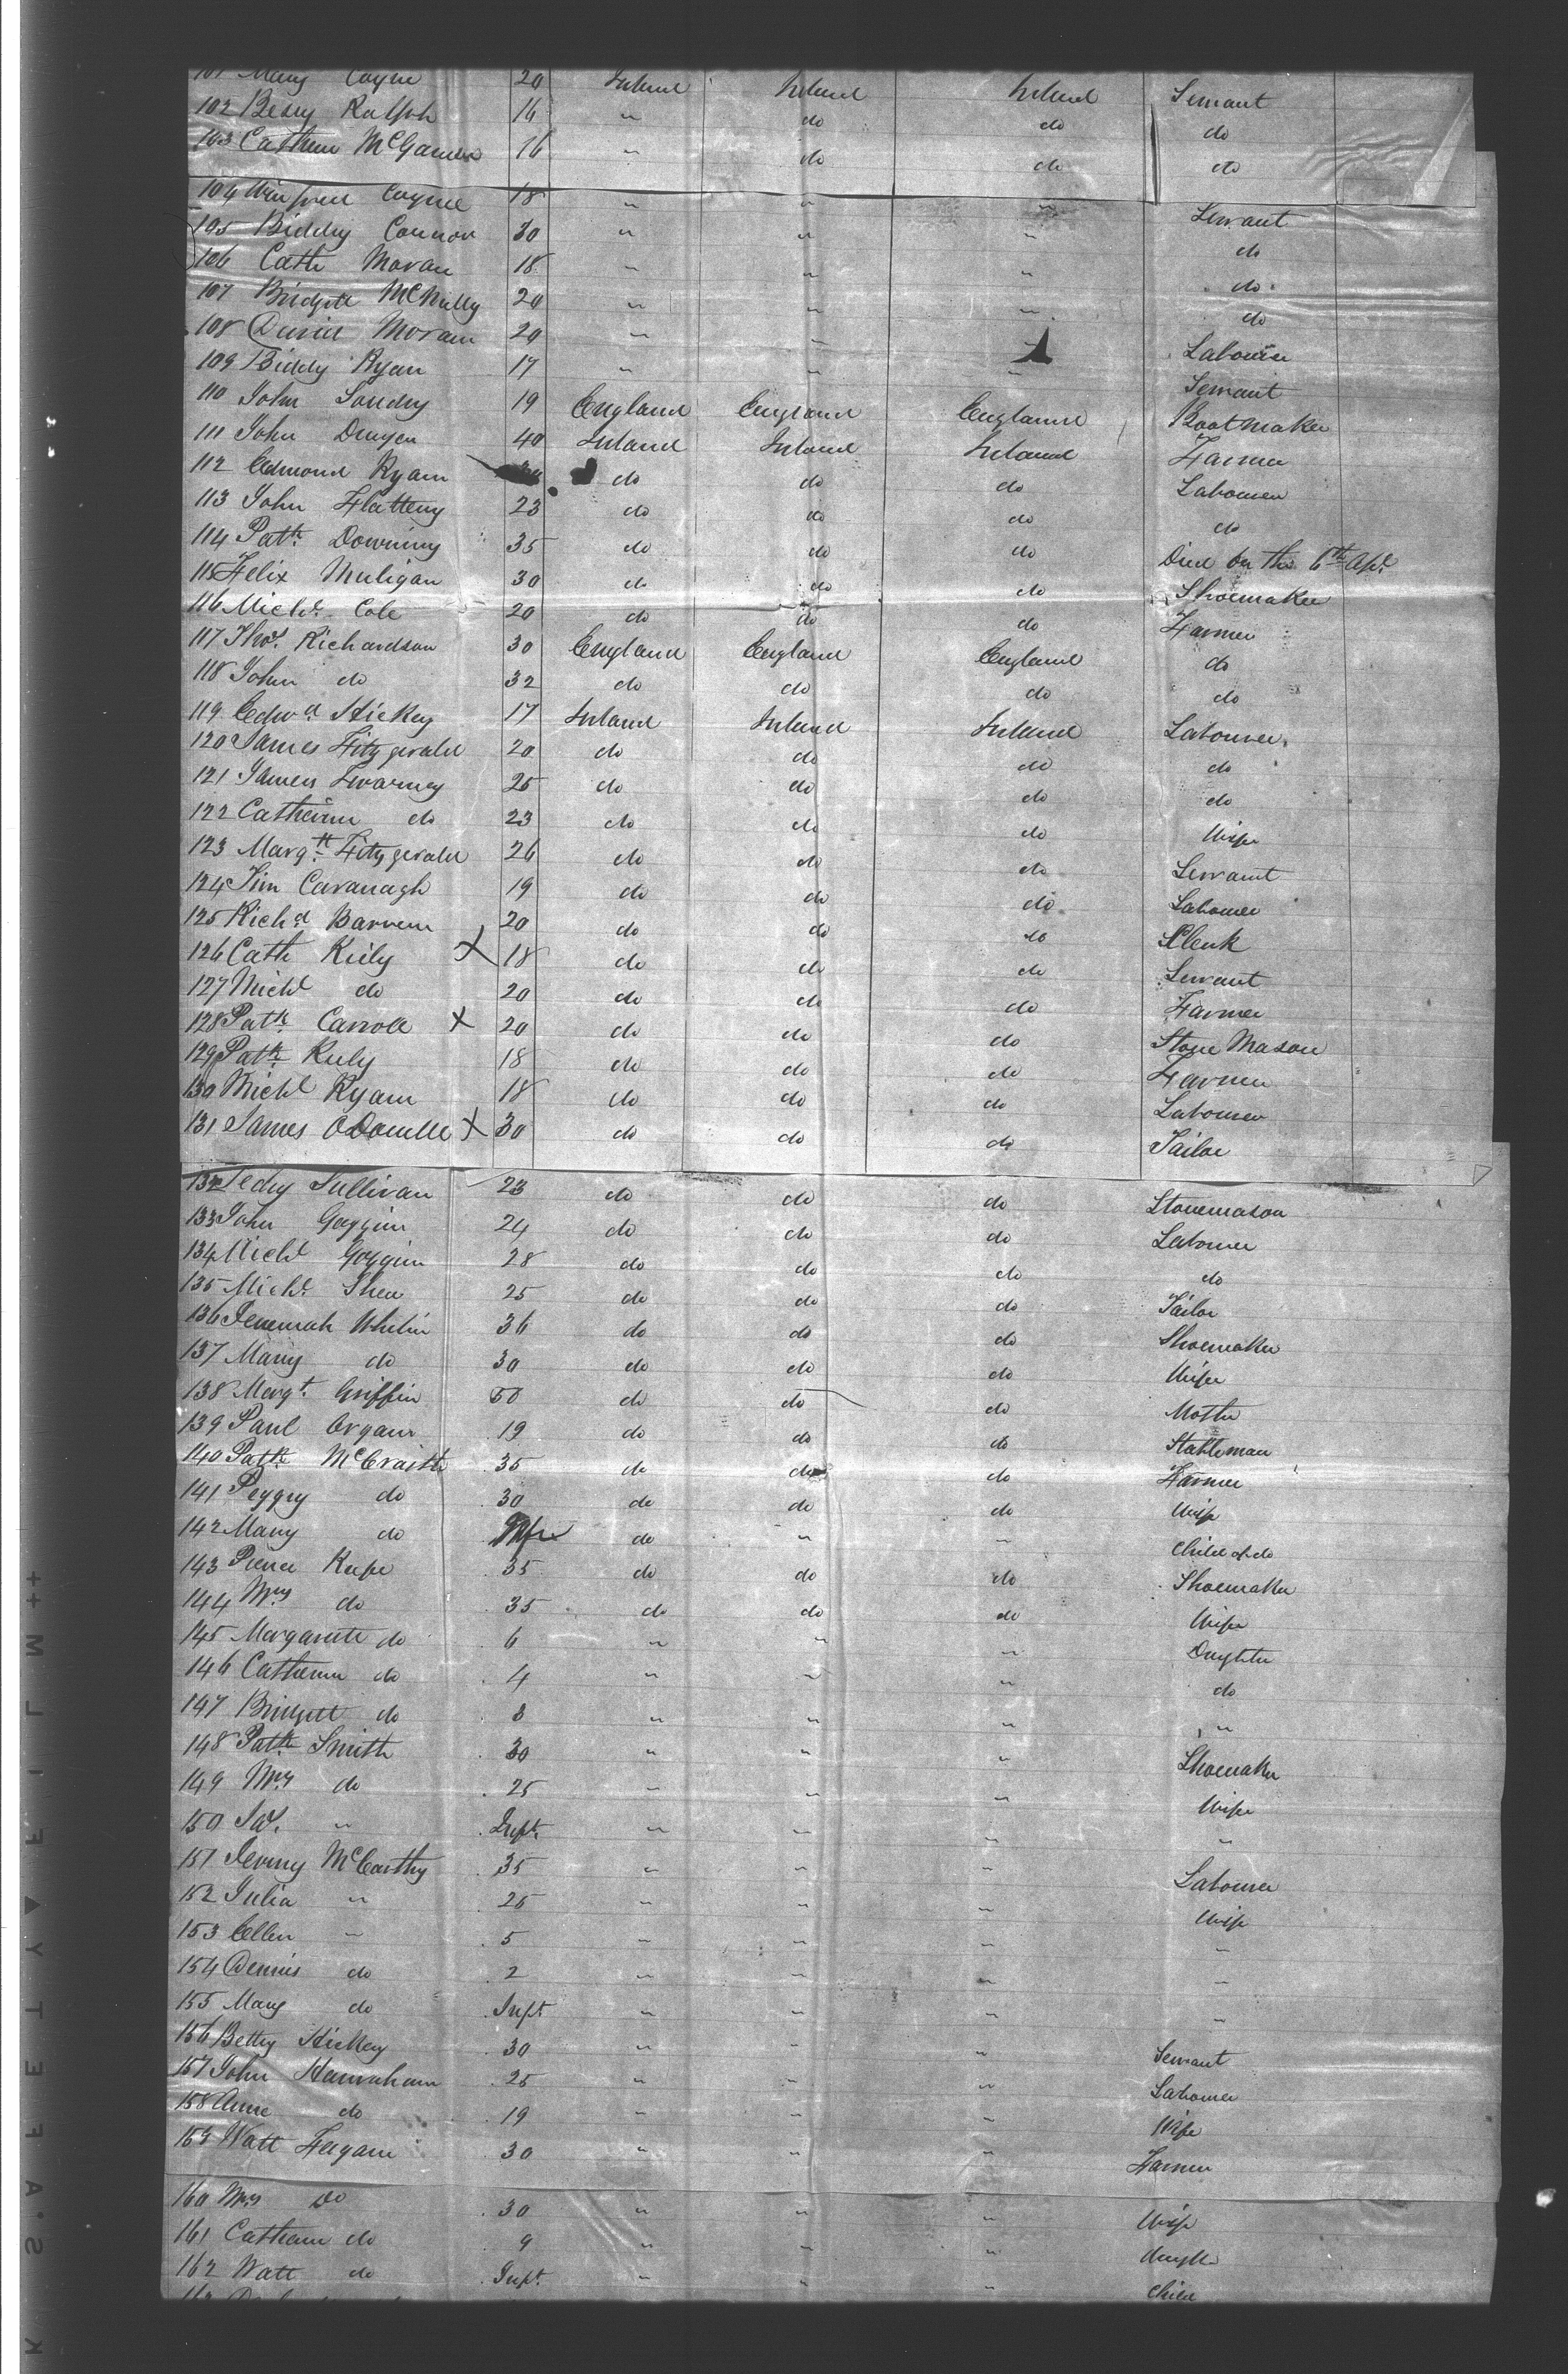 101 Mary Coyne 20 Ireland Ireland Ireland Servant
102 Bessy Ralph 16 " do do do
103 Cathrin McGarren 16 " do do do
104 Winfred Coyne 18 " " " Servant
105 Biddy Connor 30 " " " do
106 Cath Moran 18 " " " do
107 Bridgett McNully 20 " " " do
108 David Moran 20 " " Labourer
109 Biddy Ryan 17 " " " Servant
110 John Soudy 19 England England England Bootmaker
111 John Dwyer 40 Ireland Ireland Ireland Farmer
112 Edmond Ryan do do do Labourer
113 John Flattery 23 do do do do
114 Patk. Downing 35 do do do Died on the 6th Apl.
115 Felix Muligan 30 do do do Shoemaker
116 Michl. Cole 20 do do do Farmer
117 Thos. Richardson 30 England England England do
118 John do 32 do do do do
119 Edwd Hickey 17 Ireland Ireland Ireland Labourer
120 James Fitzgerald 20 do do do do
121 James 25 do do do do
122 Catherine do 23 do do do Wife
123 Margtt Fitzgerald 26 do do do Servant
124 Tim Cavanagh 19 do do do Labourer
125 Richd Barron 20 do do do Clerk
126 Cath Kiely X 18 do do do Servant
127 Michl do 20 do do do Farmer
128 Patk Carroll X 20 do do do Stone Mason
129 Patk Kiely 18 do do do Farmer
130 Michl Ryan 18 do do do Labourer
131 James ODonelle X 30 do do do Tailor
132 Tedy Sullivan 23 do do do Stonemason
133 John Goggin 24 do do do Labourer
134 Michl Goggin 28 do do do do
135 Michl. Shea 25 do do do Tailor
136 Jeremiah Whelin 36 do do do Shoemaker
137 Mary do 30 do do do Wife
138 Margt. Griffin 50 do do do Mother
139 Paul Organ 19 do do do Stableman
140 Patk McCraith 35 do do do Farmer
141 Peggy do 30 do do do Wife
142 Mary do Inft do " " Child of do
143 Pierce Keefe 35 do do do Shoemaker
144 Mrs do 35 do do do Wife
145 Margarett do 6 " " " Daughter
146 Catherine do 4 " " " do
147 Bridgett do 3 " " " "
148 Patk Smith 30 " " " Shoemaker
149 Mrs do 25 " " " Wife
150 Jas. " Inft. " " " "
151 Jermy McCarthy 35 " " " Labourer
152 Julia " 25 " " " Wife
153 Ellen " 5 " " " "
154 Dennis do 2 " " " "
155 Mary do Inft " " " "
156 Betty Hickey 30 " " Servant
157 John Hanrahan 25 " " " Labourer
158 Anne do 19 " " " Wife
159 Watt Feagan 30 " " " Farmer
160 Mrs Do 30 " " " Wife
161 Catherin do 9 " " " daughter
162 Watt do Inft. " " " Child